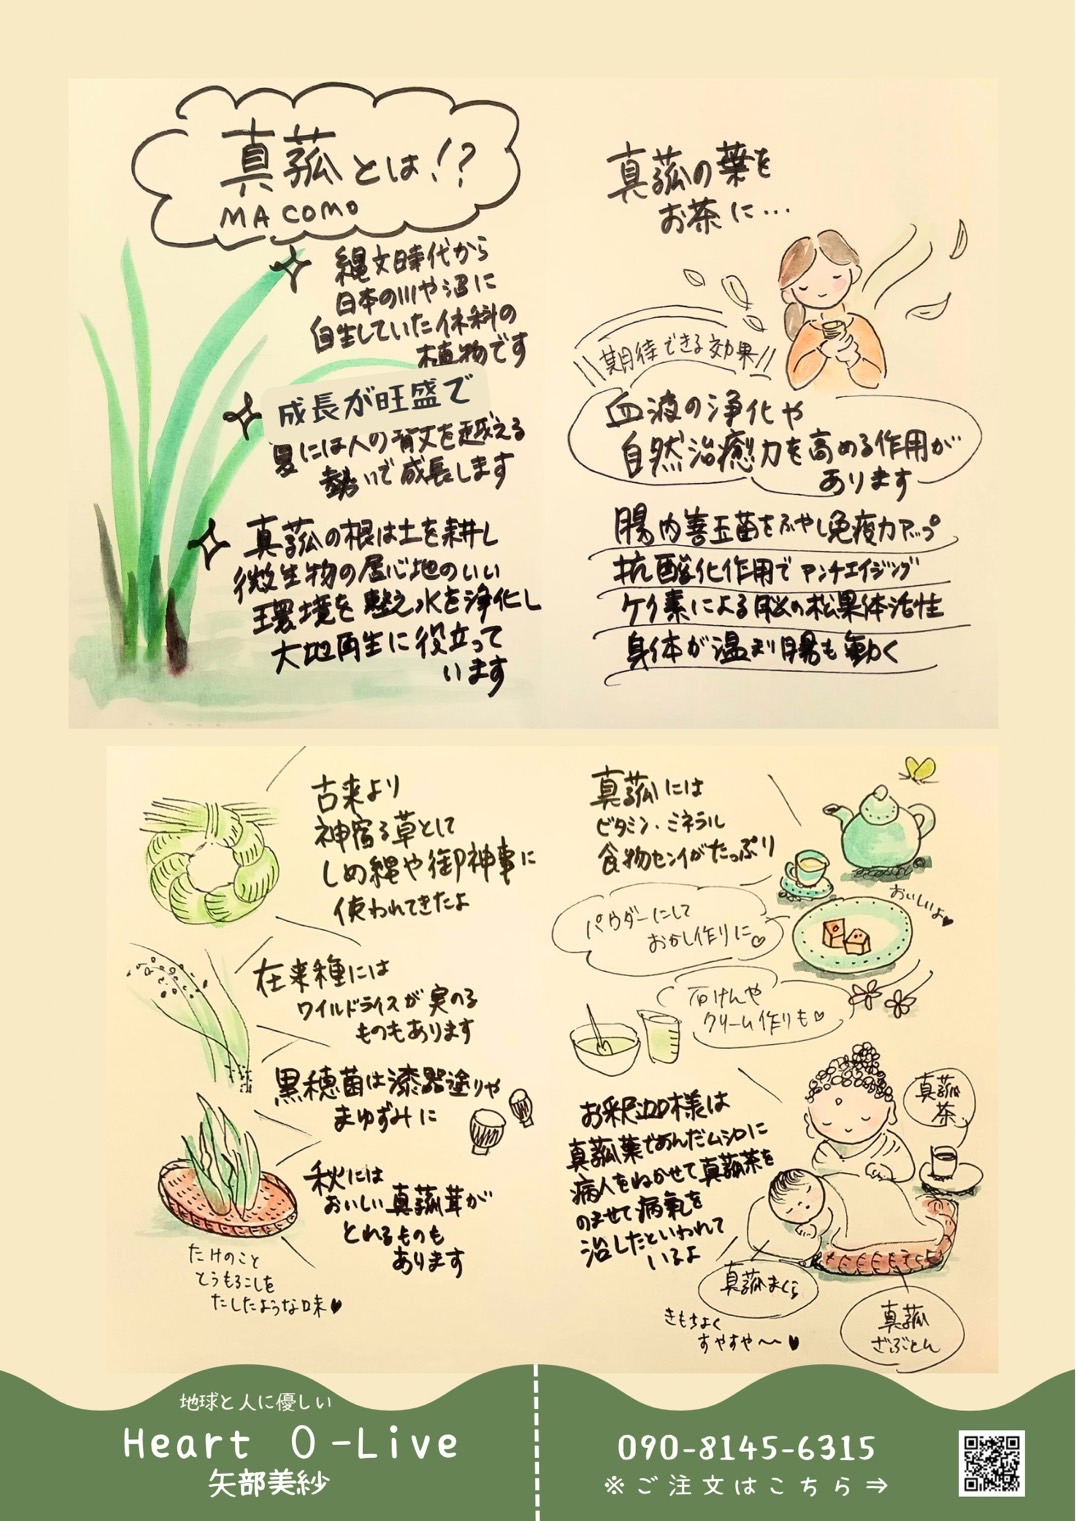 真菰とは!?
MACOMO
縄文時代から
日本の川や沼に
自生していたイネ科の
植物です
成長が旺盛で
夏には人の背丈を越える
勢いで成長します
真菰の根は土を耕し
微生物の居心地のいい
環境を整え水を浄化し
大地再生に役立って
います
真菰の葉を
お茶に…
期待できる効果
血液の浄化や
自然治癒力を高める作用が
あります
腸内善玉菌をふやし免疫力アップ
抗酸化作用でアンチエイジング
ケイ素による脳の松果体活性
身体が温まり腸も動く
古来より
神宿る草として
しめ縄や御神事に
使われてきたよ
在来種には
ワイルドライスが実のる
ものもあります
黒穂菌は漆器塗りや
まゆずみに
秋には
おいしい真菰茸が
とれるものも
あります
たけのこと
とうもろこしを
たしたような味♥
真菰には
ビタミン・ミネラル
食物センイがたっぷり
おいしいよ♥
パウダーにして
おかし作りに♡
石けんや
クリーム作りも♡
お釈迦様は
真菰葉であんだムシロに
病人をねかせて真菰茶を
のませて病氣を
治したといわれて
いるよ
真菰
茶
真菰まくら
きもちよく
すやすや〜♥
真菰
ざぶとん
地球と人に優しい
Heart O-Live
矢部美紗
090-8145-6315
※ご注文はこちら⇒